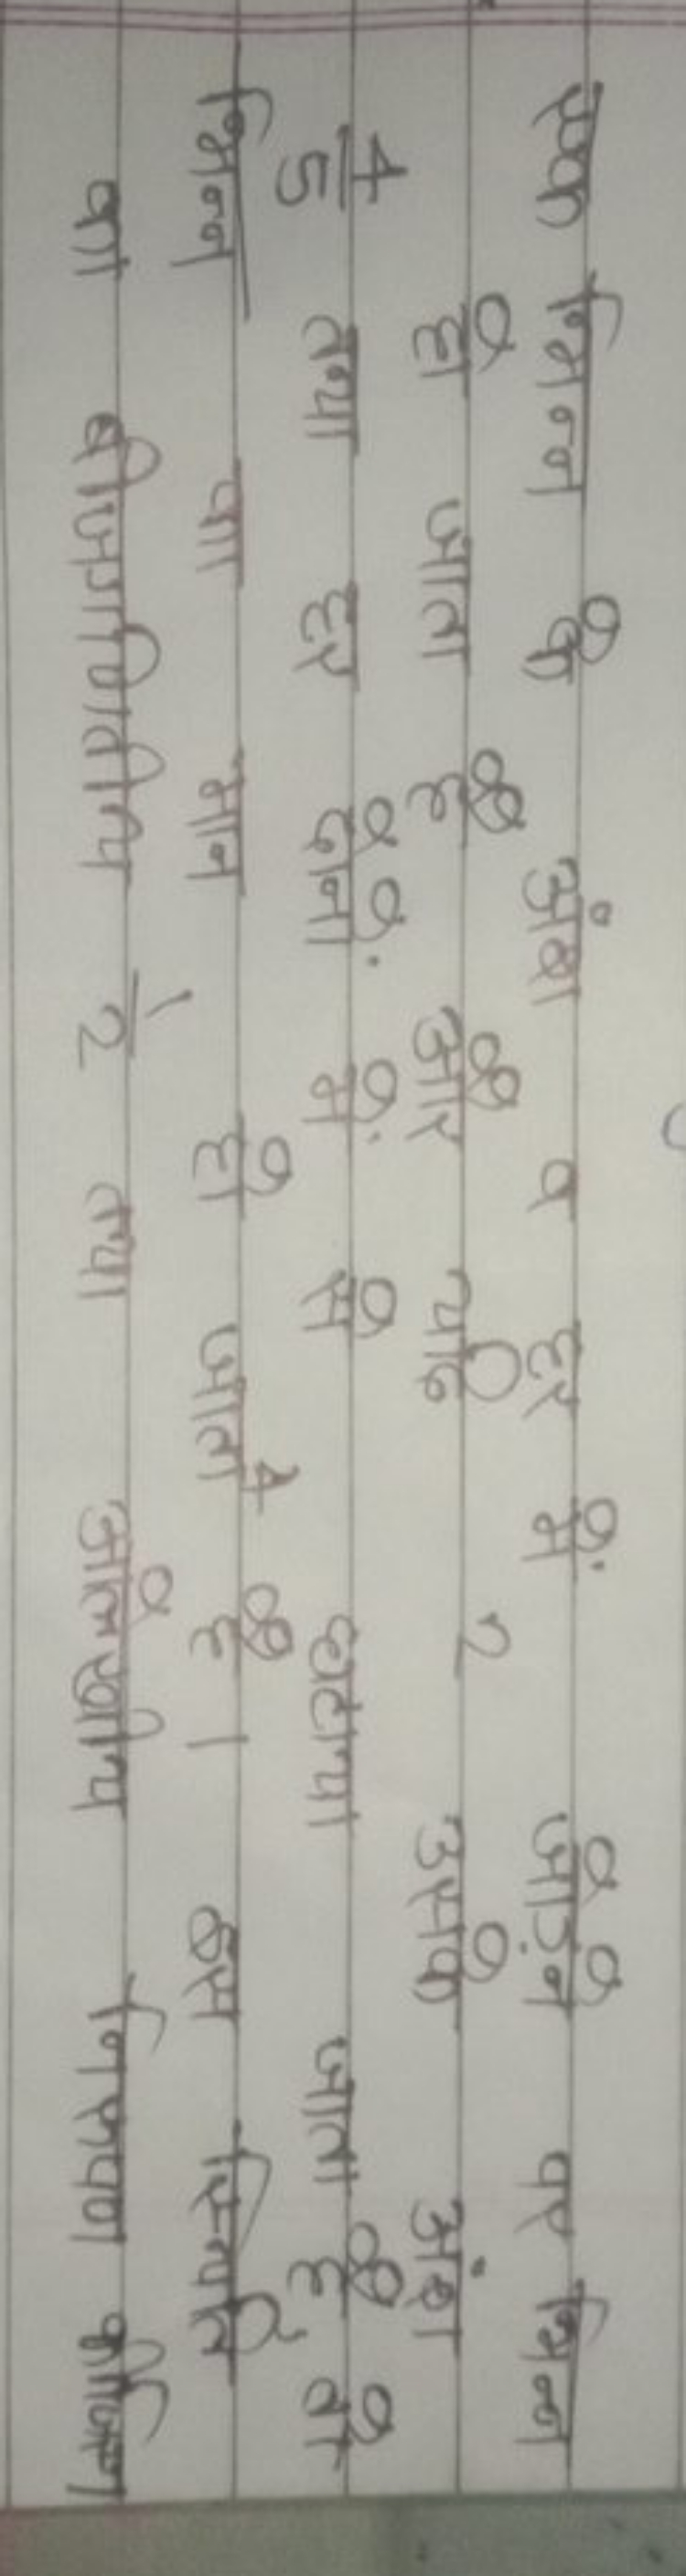 एक भिन्न के अंश व हर में जोड़ने पर भिन्न
4/5 हो जाता है और यदि 2 उसके अंश
तथा हर दोनों में से 4 घटाया जाता है तो
भिन्न का मान हो जाता है। इस स्थिति
का बीजगणितीय 1/2 तथा आलेखीय निरूपण कीजिए